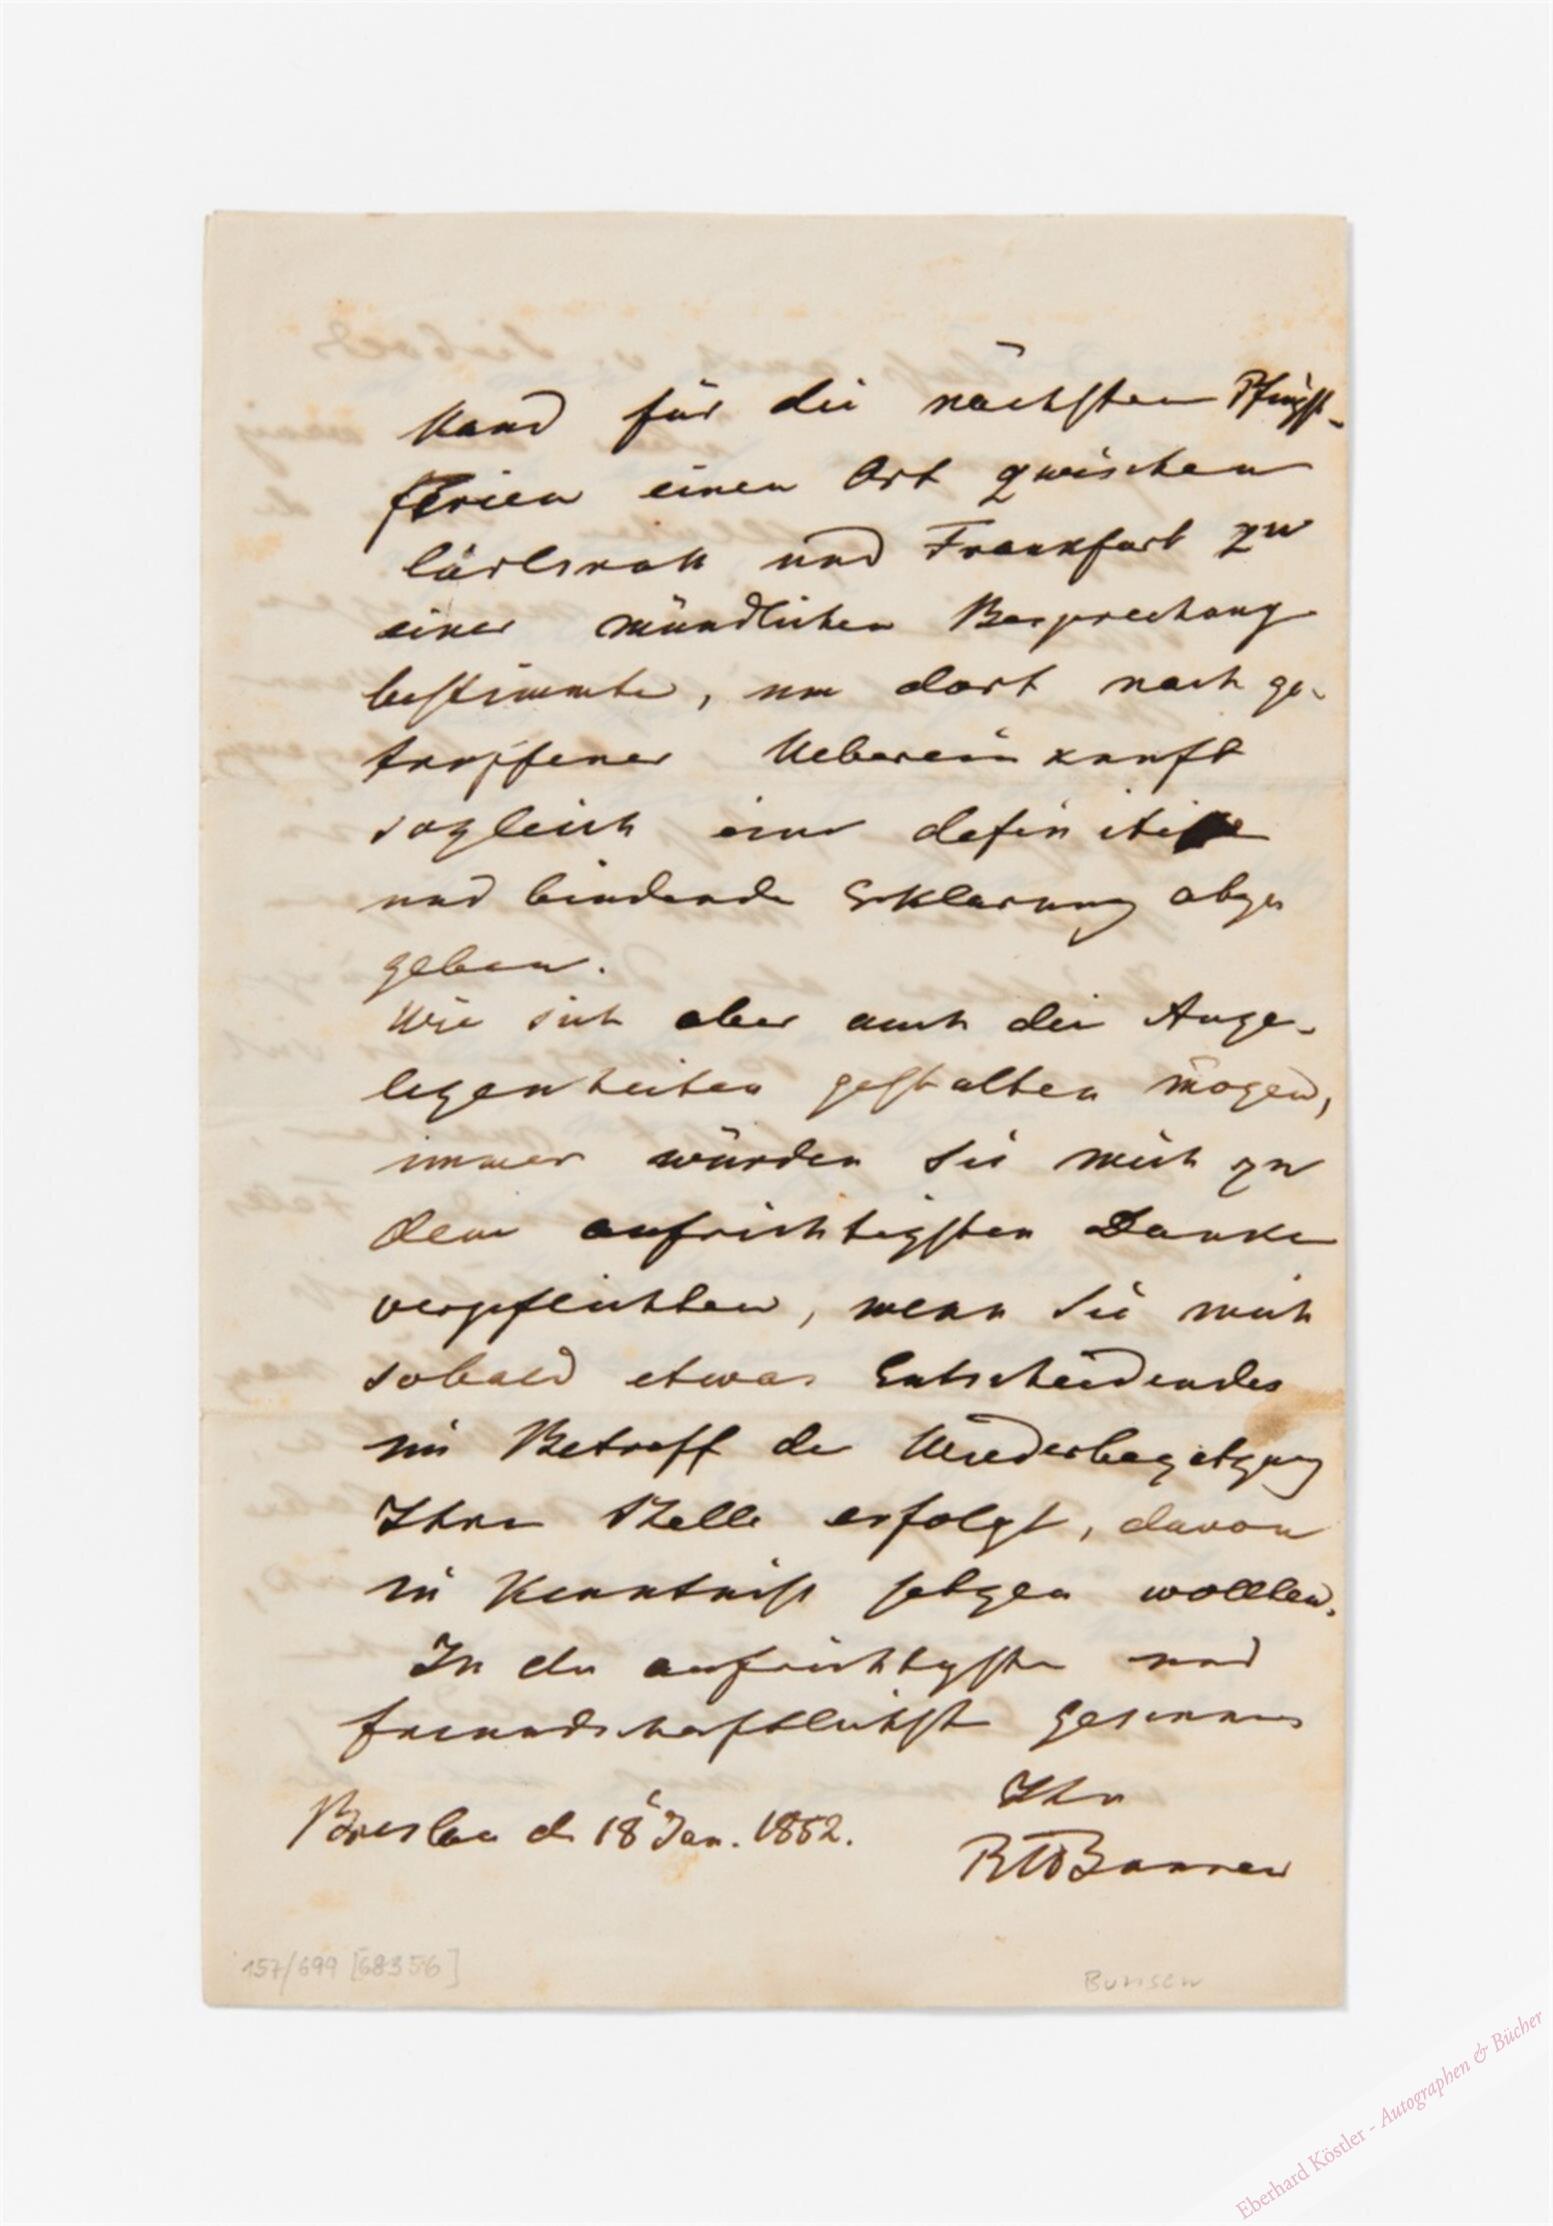 Hand für die nächsten Pfingst-
ferien einen Ort zwischen
Carlsruh und Frankfurt zu
einer mündlichen Besprechung
bestimmte, um dort nach ge-
troffener Uebereinkunft
sogleich eine definitive
und bindende Erklärung abzu
geben.
Wie sich aber auch die Ange-
legenheiten gestalten mögen,
immer würden Sie mich zu
dem aufrichtigsten Danke
verpflichten, wenn Sie mich
sobald etwas Entscheidendes
in Betreff der Wiederbesetzung
Ihrer Stelle erfolgt, davon
in Kenntniss setzen wollten.
In der aufrichtigsten und
freundschaftlichsten Gesinnung
Ihr
Breslau d. 18 Jan. 1852.
RWBunsen
157/699 [68356]
Bunsen
Eberhard Köstler - Autographen & Bücher